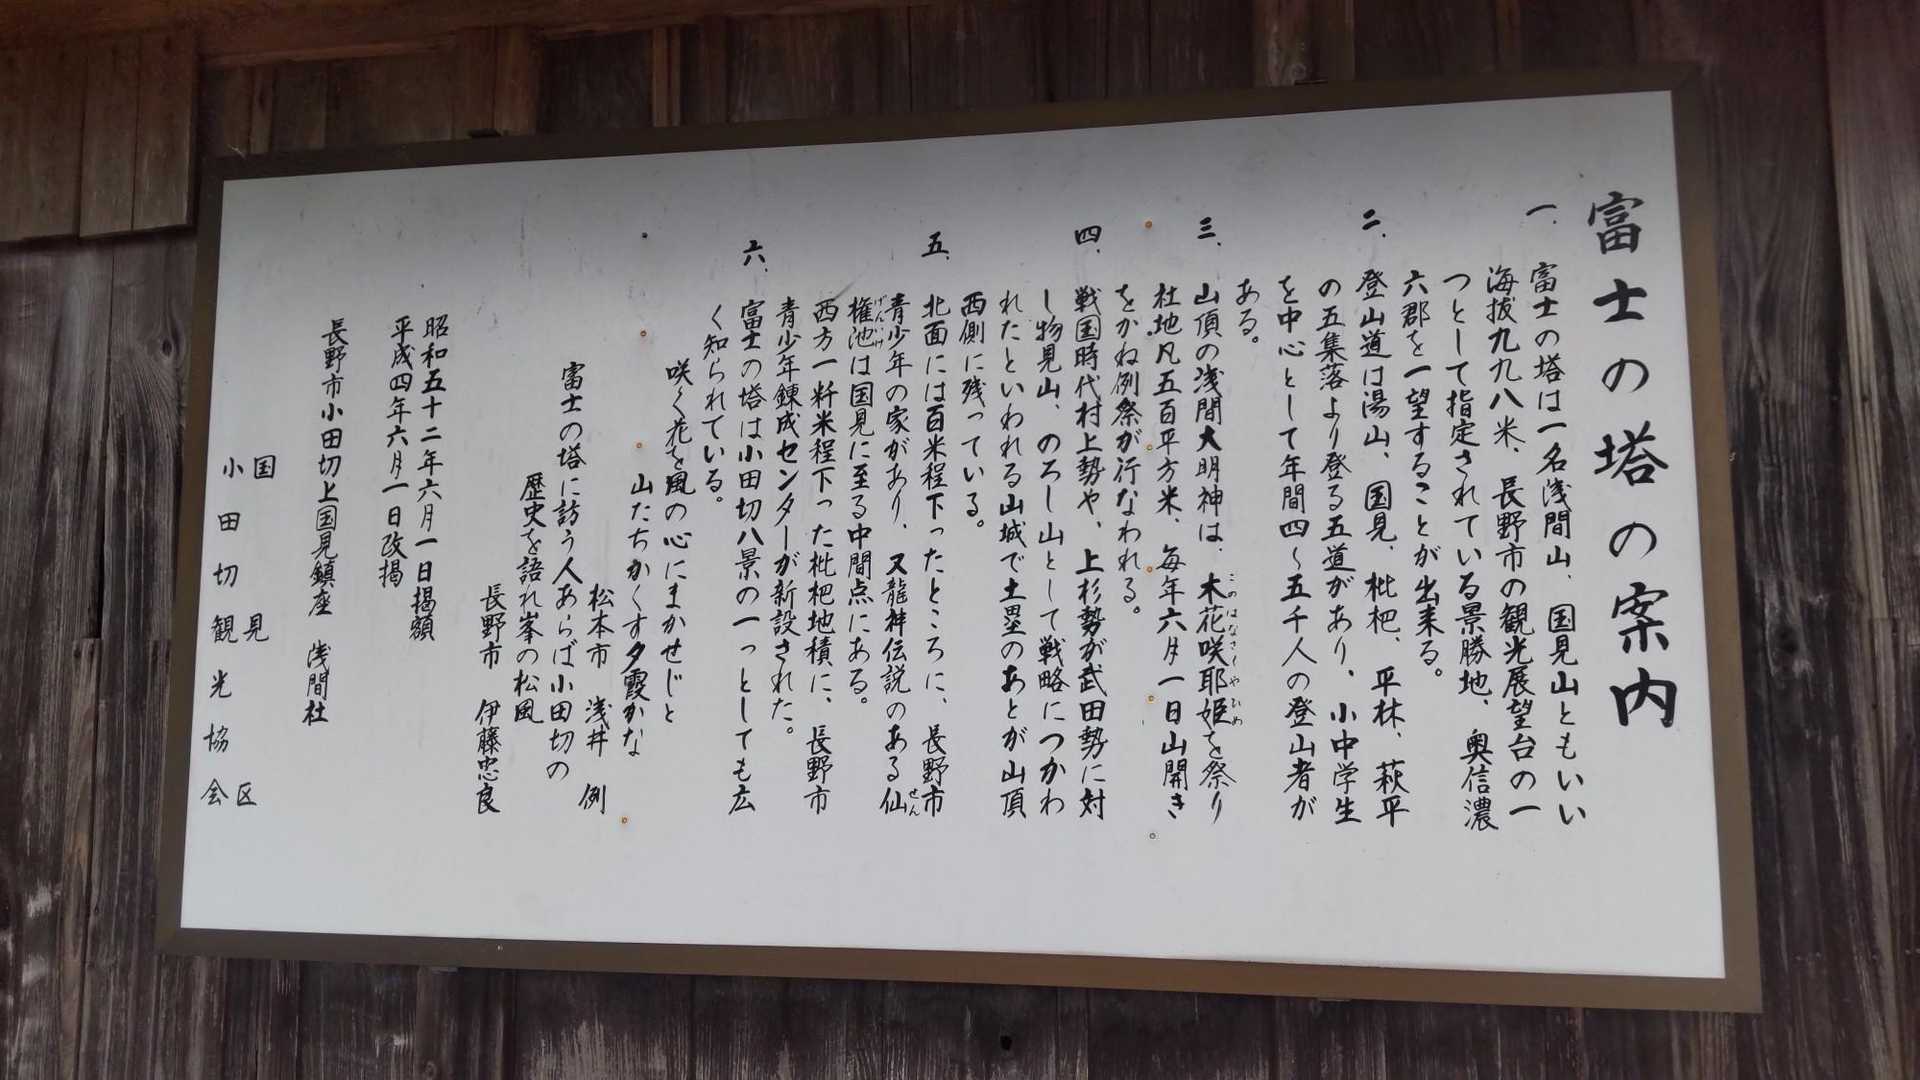 富士の塔の案内
一、富士の塔は一名浅間山、国見山ともいい
海抜九九八米、長野市の観光展望台の一
つとして指定されている景勝地、奥信濃
六郡を一望することが出来る。
二、登山道は湯山、国見、枇杷、平林、萩平
の五集落より登る五道があり、小中学生
を中心として年間四〜五千人の登山者が
ある。
三、山頂の浅間大明神は、木花咲耶姫を祭り
このはなさくやひめ
社地凡五百平方米、毎年六月一日山開き
をかね例祭が行なわれる。
四、戦国時代村上勢や、上杉勢が武田勢に対
し物見山、のろし山として戦略につかわ
れたといわれる山城で土塁のあとが山頂
西側に残っている。
五、北面には百米程下ったところに、長野市
青少年の家があり、又龍神伝説のある仙
せん
権池は国見に至る中間点にある。
げんいけ
西方一粁米程下った枇杷地積に、長野市
青少年錬成センターが新設された。
六、富士の塔は小田切八景の一っとしても広
く知られている。
咲く花を風の心にまかせじと
山たちかくす夕霞かな
松本市 浅井 例
富士の塔に訪う人あらば小田切の
歴史を語れ峯の松風
長野市 伊藤忠良
昭和五十二年六月一日掲額
平成四年六月一日改掲
長野市小田切上国見鎮座 浅間社
国見区
小田切観光協会